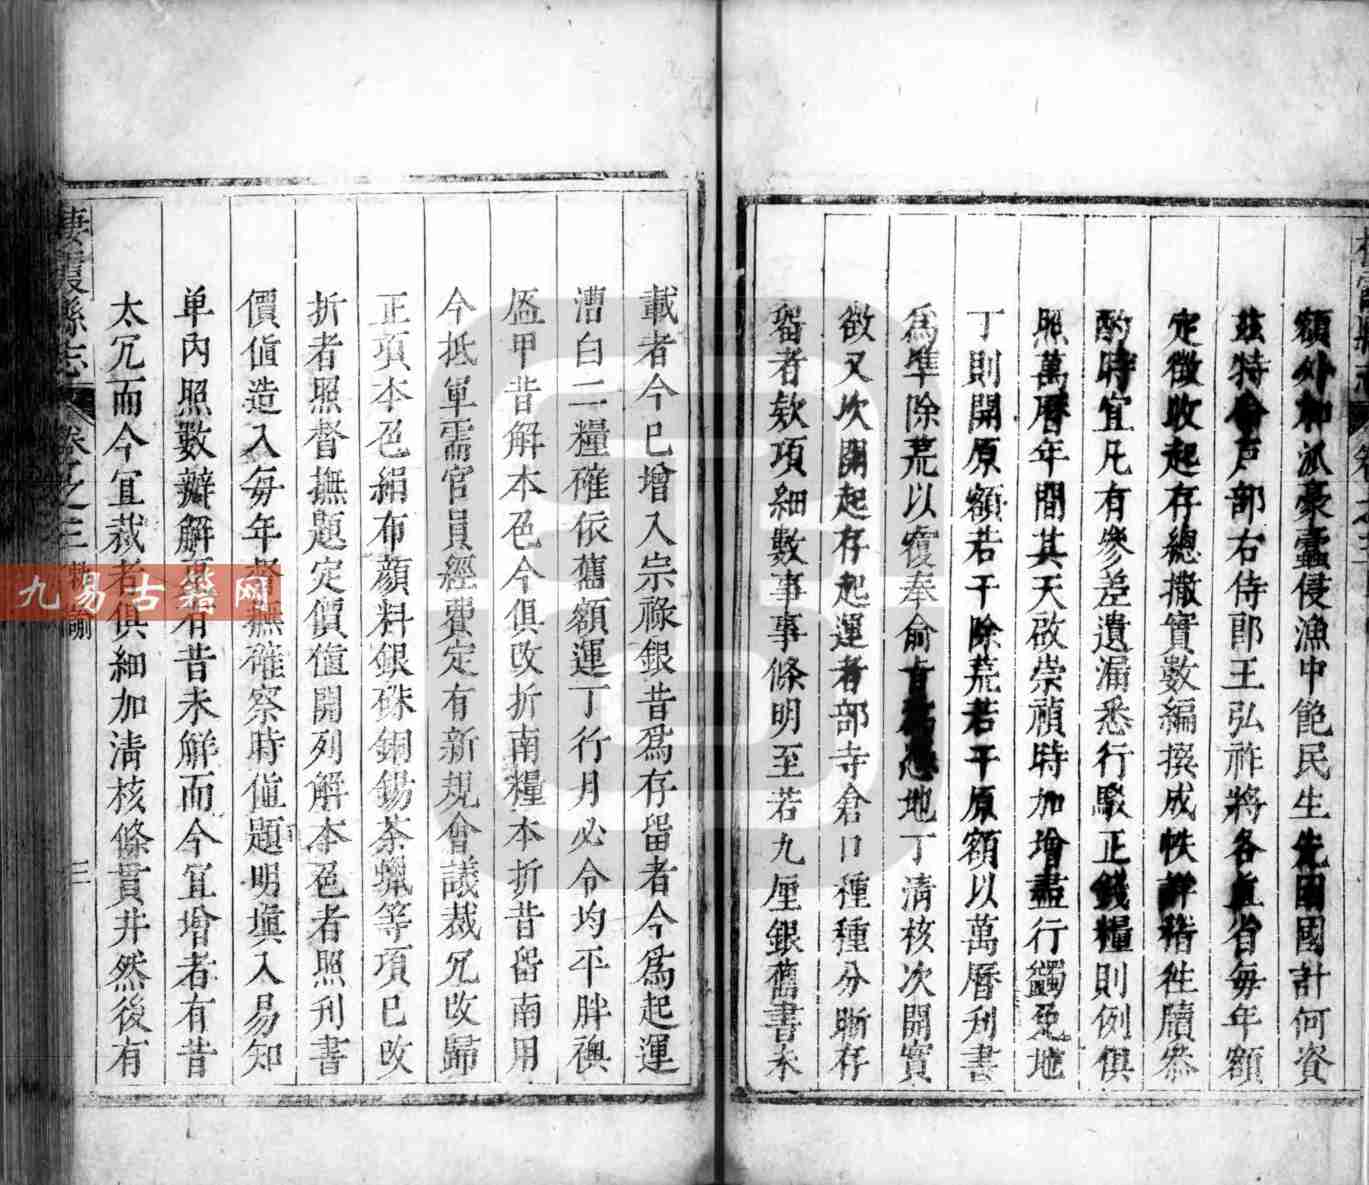 額外加派豪蠹侵漁中飽民生先困國計何資
茲特命戶部右侍郎王弘祚將各直省每年額
定徵收起存總撒實數編撰成帙詳稽往牘叅
酌時宜凡有參差遺漏悉行駁正錢糧則例俱
照萬曆年間其天啟崇禎時加增盡行蠲免地
丁則開原額若干除荒若干原額以萬曆刊書
爲準除荒以覆奉俞旨爲憑地丁清核次開實
徵又次開起存起運者部寺倉口種種分晰存
畱者欵項細數事事條明至若九厘銀舊書未
載者今已增入宗祿銀昔爲存留者今爲起運
漕白二糧確依舊額運丁行月必令均平胖襖
盔甲昔解本色今俱改折南糧本折昔畱南用
今抵軍需官員經費定有新規會議裁冗改歸
正項本色絹布顔料銀硃銅錫茶蠟等項已改
折者照督撫題定價值開列解本色者照刊書
價值造入每年督撫確察時值題明塡入易知
单內照數辦解更有昔未解而今宜增者有昔
太冗而今宜裁者俱細加清核條貫井然後有
棲霞縣志
卷之三
三
九易古籍网